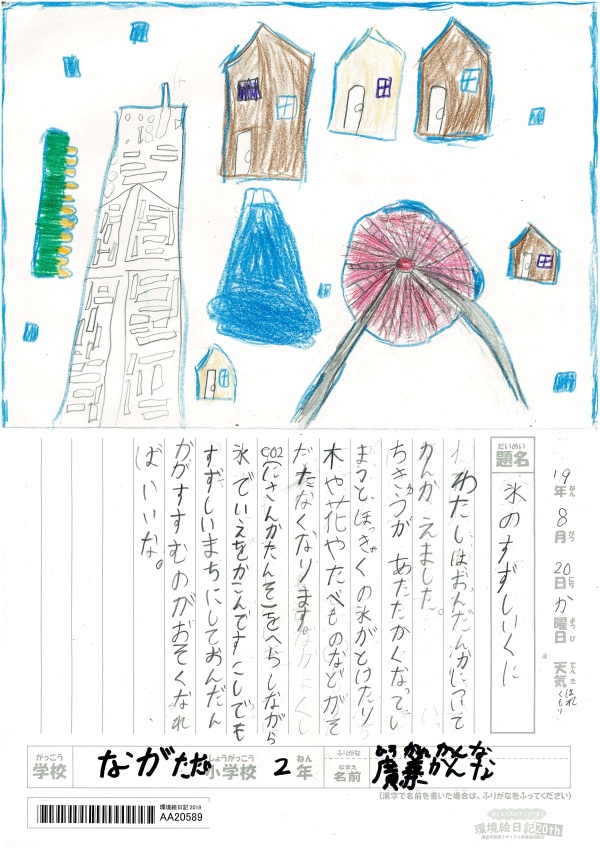 19年ねん 8月がつ 20日にち か曜日ようび 天気てんき はれ くもり
題名だいめい 氷のすずしいくに
わたしはおんだんかについて
かんかえました。
ちきゅうが あたたかくなってし
まうと、ほっきゃくの氷がとけたり、
木や花やたべものなどがそ
だたなくなります。
CO2(にさんかたんそ)をへらしながら
氷でいえをかこんですこしでも
すずしいまちにしておんだん
かがすすむのがおそくなれ
ばいいな。
学校がっこう ながただ 小学校しょうがっこう 2年ねん
ふりがな
名前なまえ かんな
(漢字で名前を書いた場合は、ふりがなをふってください)
環境絵日記 2019
AA20589
環境絵日記20th